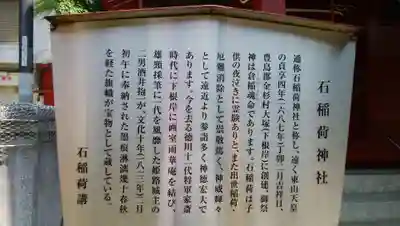 石稲荷神社
通称石稲荷神社と称し、遠く東山天皇
の貞享四年(一六八七年)丁卯二月吉祥日、
豊島郡金杉村大塚(下根岸)に創建、御祭
神は倉稲魂命であります。石稲荷は子
供の夜泣きに霊験ありと、また出世稲荷・
厄難消除として崇敬篤く、神威輝々
として遠近より参詣多く神徳宏大で
あります。今を去る徳川十一代将軍家斎
時代に下根岸に画室雨華庵を結び、
雄頸採筆に一代を風靡した姫路城主の
二男酒井抱一が、文化十年(一八一三年)二月
初午に奉納された墨痕淋漓幾十春秋
を経た旗幟が宝物として蔵している。
石稲荷講